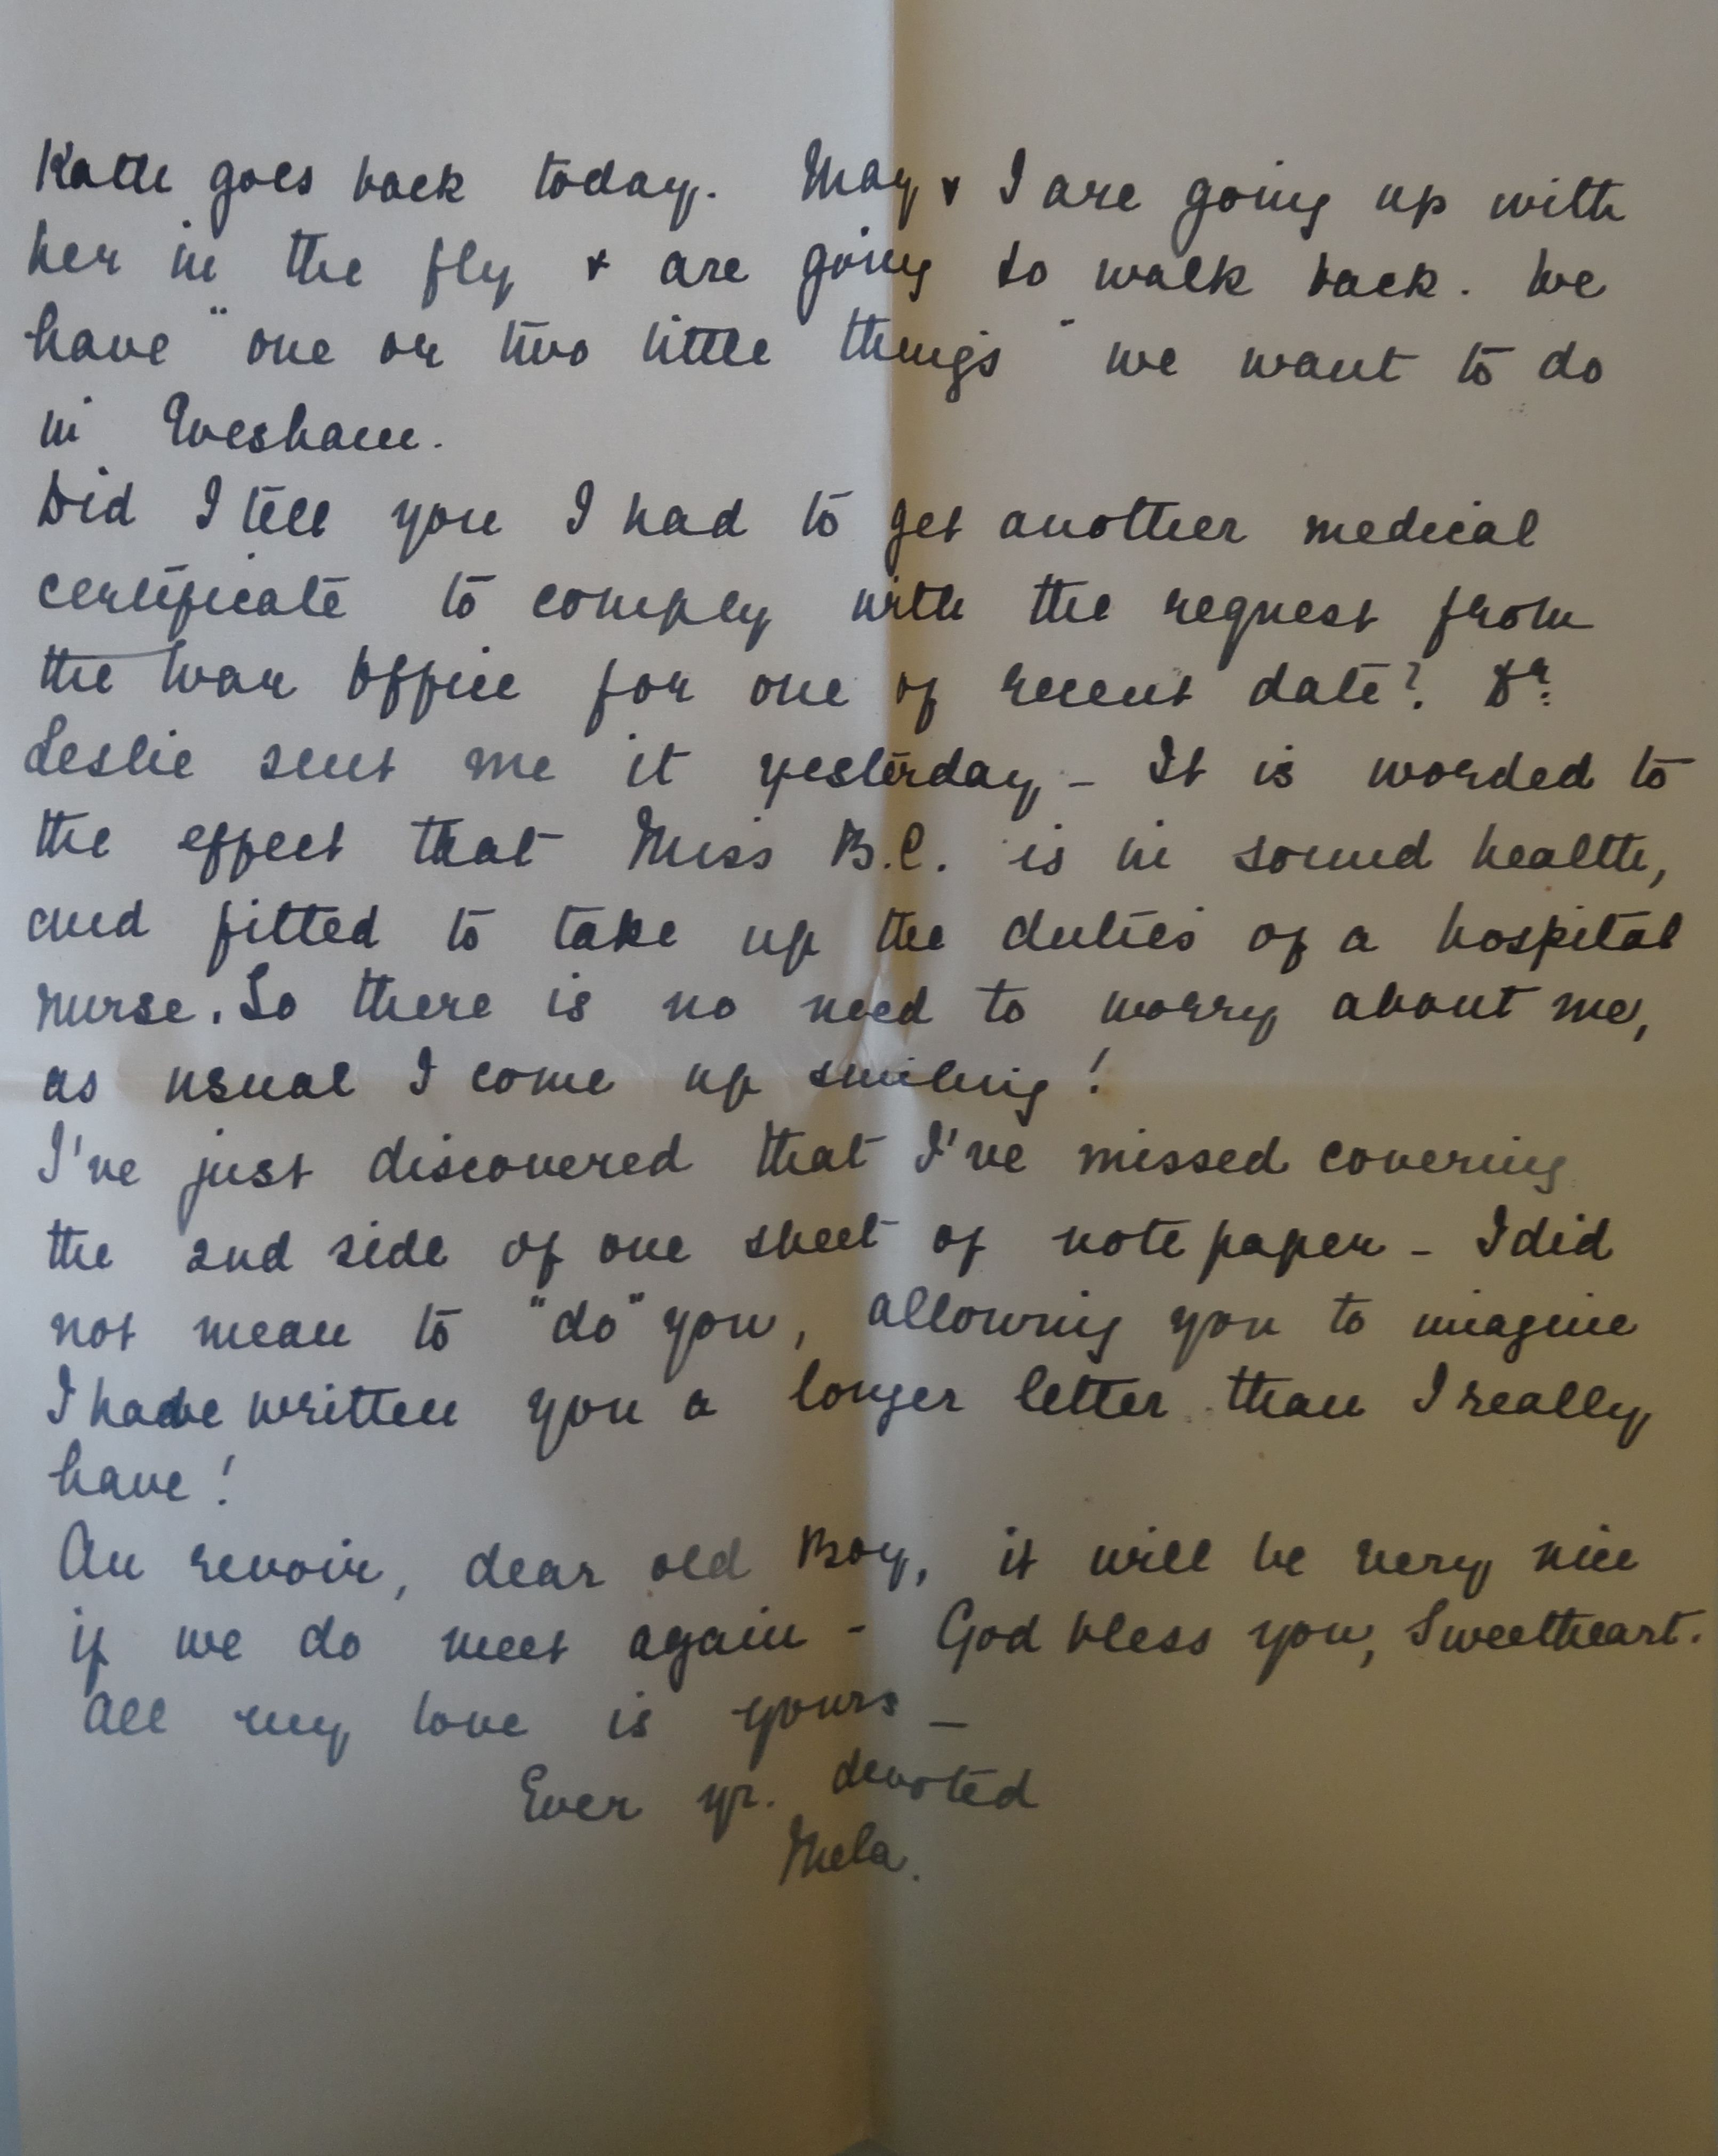 Kath goes back today. May & I are going up with
her in the fly & are going to walk back. We
have "one or two little things" we want to do
in Evesham.
Did I tell you I had to get another medical
certificate to comply with the request from
the War Office for one of recent date? Dr.
Leslie sent me it yesterday - It is worded to
the effect that Miss B.C. is in sound health,
and fitted to take up the duties of a hospital
nurse. So there is no need to worry about me,
as usual I come up smiling!
I've just discovered that I've missed covering
the 2nd side of one sheet of note paper - I did
not mean to "do" you, allowing you to imagine
I have written you a longer letter than I really
have!
Au revoir, dear old Boy, it will be very nice
if we do meet again - God bless you, Sweetheart.
All my love is yours -
Ever yr. devoted
Mela.